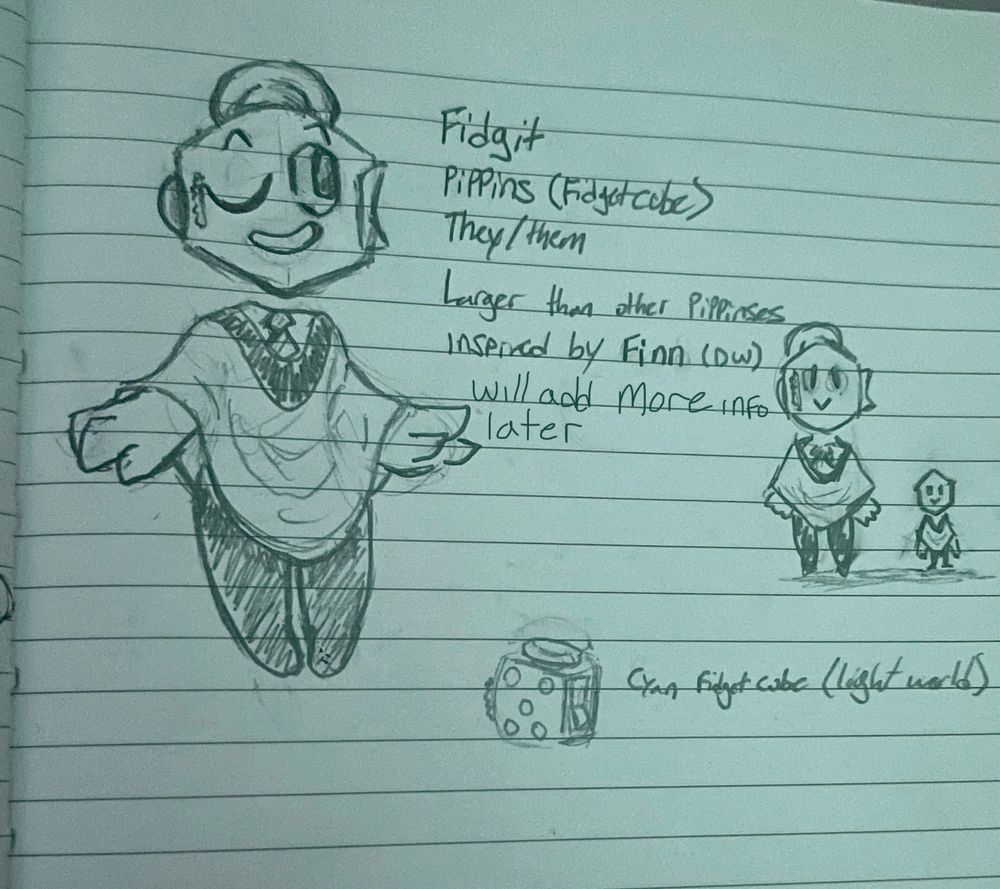 Fidgit
Pippins (Fidget cube)
They/them
Larger than other Pippinses
inspired by Finn (DW)
will add more info
later
Cyan Fidget cube (light world)